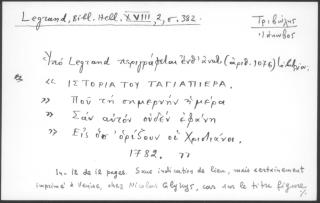 Legrand, Bibl. Hell. XVIII, 2, σ. 382.
Τριβώλης
Ἰάκωβος
Ὑπὸ Legrand περιγράφεται ἐνθ' ἀνωτ. (ἀριθ. 1076)
« ΙΣΤΟΡΙΑ ΤΟΥ ΤΑΓΙΑΠΙΕΡΑ.
» Ποῦ τὴ σημερνὴν ἡμέρα
» Σὰν αὐτὸν οὐδὲν ἐφάνη
» Εἰς ὅσ' ὁρίζουν οἱ Χριστιάνοι.
1782. »
In-12 de 12 pages. Sans indication de lieu, mais certainement
imprimé à Venise, chez Nicolas Glykys, car sur le titre figure